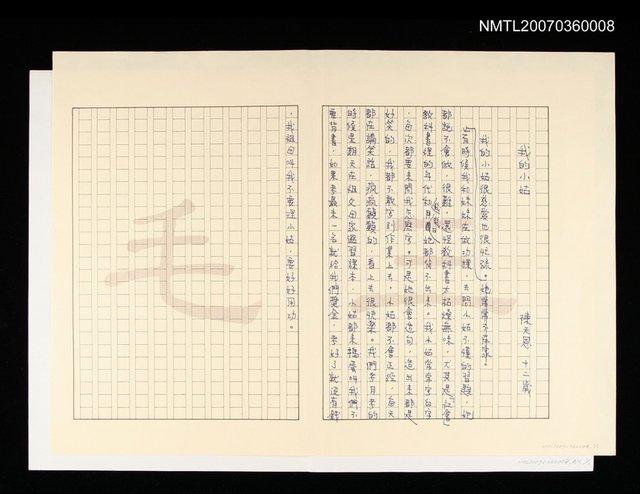 NMTL20070360008
我的小姑
陳天恩 十二歲
我的小姑很慈愛也很忙碌。她常常不在家。
有時候我和妹妹在做功課，去問小姑不懂的習題，她
都說不會做，很難，還怪教科書太枯燥無味，尤其是「社會」
教科書裡的年代和月日她都背不出來。我小姑常常寫白字
，每次都要來問我怎麼寫。可是她很會造句，造出來都是
好笑的，我都不敢寫到作業上去。小姑都不會正經，每天
都在講笑話，瘋瘋癲癲的，看上去很快樂。我們考月考的
時候是趕天在祖父母家溫習課本，小姑都來搗蛋叫我們不
要背書，如果考最末一名就給我們獎金，考好了就沒有錢
，我祖母叫我不要理小姑，要好好用功。
毛
NMTL20070360008